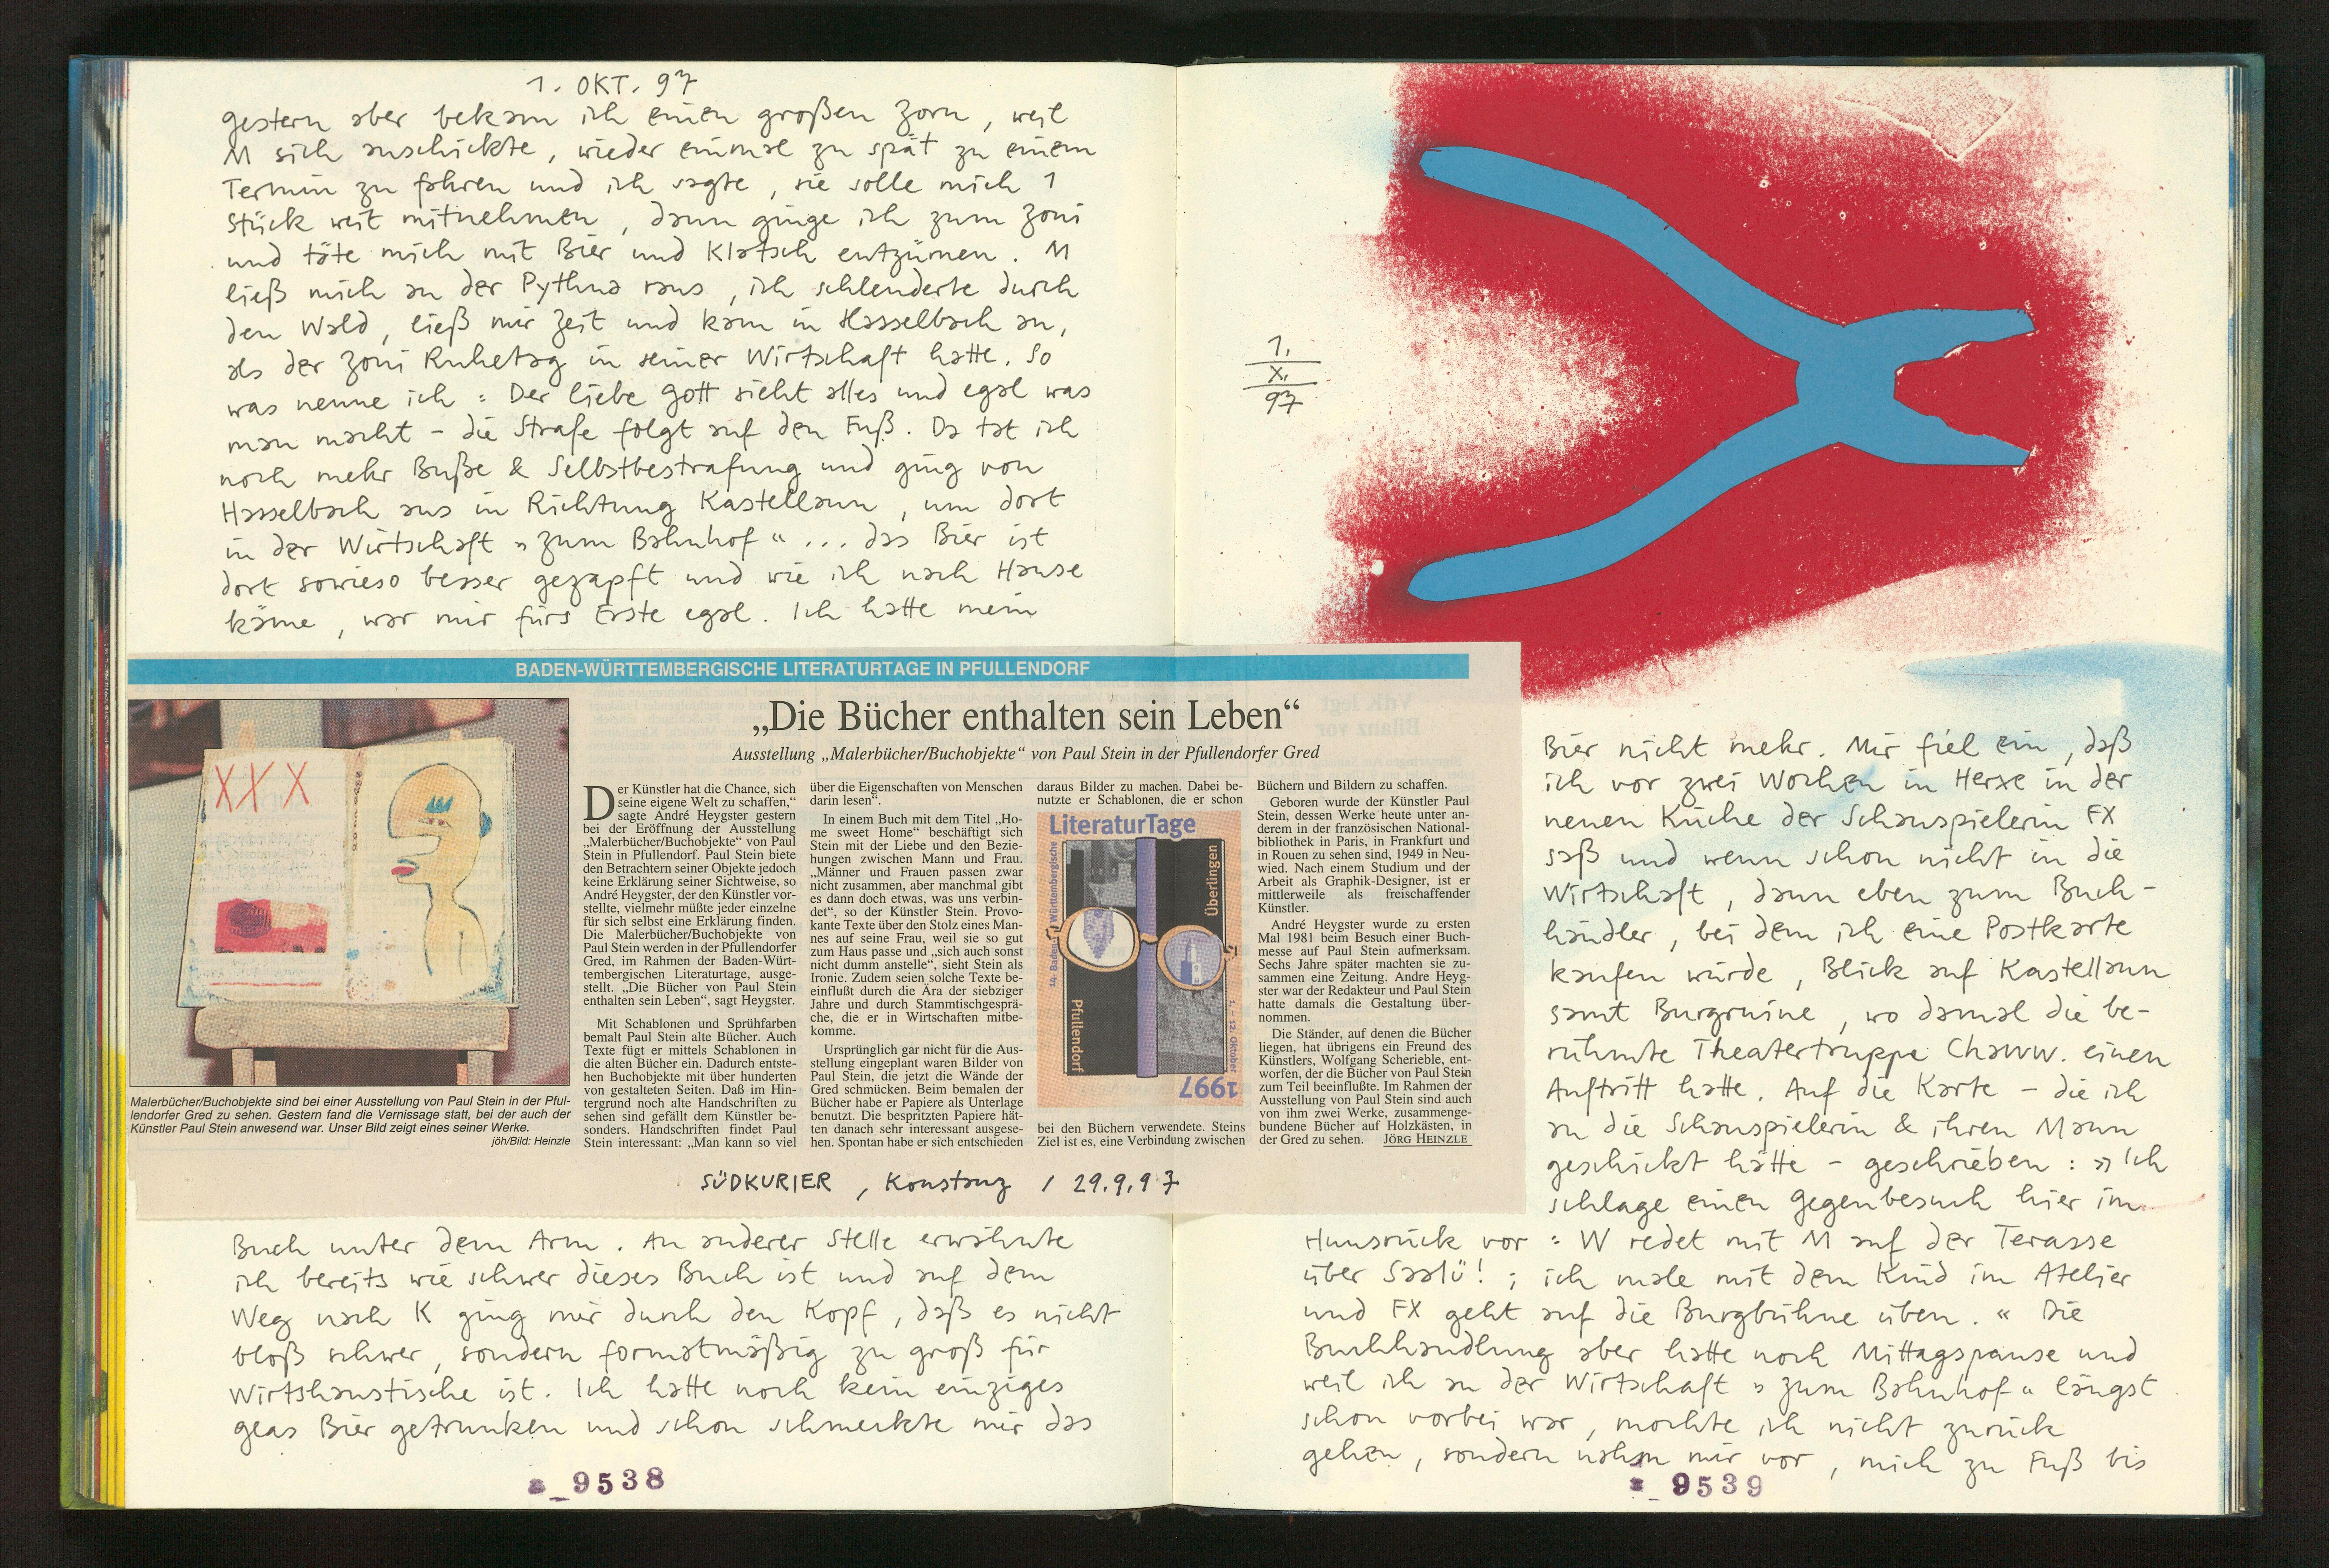 1. OKT. 97
gestern aber bekam ich einen großen Zorn, weil
M sich anschickte, wieder einmal zu spät zu einem
Termin zu fahren und ich sagte, sie solle mich 1
Stück weit mitnehmen, dann ginge ich zum Zoni
und täte mich mit Bier und Klatsch entzürnen. M
ließ mich an der Pythna raus, ich schlenderte durch
den Wald, ließ mir Zeit und kam in Hasselbach an,
als der Zoni Ruhetag in seiner Wirtschaft hatte. So
was nenne ich: Der liebe Gott sieht alles und egal was
man macht – die Strafe folgt auf den Fuß. Da tat ich
noch mehr Buße & Selbstbestrafung und ging von
Hasselbach aus in Richtung Kastellaun, um dort
in der Wirtschaft »zum Bahnhof« ... das Bier ist
dort sowieso besser gezapft und wie ich nach Hause
käme, war mir fürs Erste egal. Ich hatte mein
BADEN-WÜRTTEMBERGISCHE LITERATURTAGE IN PFULLENDORF
„Die Bücher enthalten sein Leben“
Ausstellung „Malerbücher/Buchobjekte“ von Paul Stein in der Pfullendorfer Gred
XXX
Malerbücher/Buchobjekte sind bei einer Ausstellung von Paul Stein in der Pful-
lendorfer Gred zu sehen. Gestern fand die Vernissage statt, bei der auch der
Künstler Paul Stein anwesend war. Unser Bild zeigt eines seiner Werke.
jöh/Bild: Heinzle
Der Künstler hat die Chance, sich
seine eigene Welt zu schaffen,“
sagte André Heygster gestern
bei der Eröffnung der Ausstellung
„Malerbücher/Buchobjekte“ von Paul
Stein in Pfullendorf. Paul Stein biete
den Betrachtern seiner Objekte jedoch
keine Erklärung seiner Sichtweise, so
André Heygster, der den Künstler vor-
stellte, vielmehr müßte jeder einzelne
für sich selbst eine Erklärung finden.
Die Malerbücher/Buchobjekte von
Paul Stein werden in der Pfullendorfer
Gred, im Rahmen der Baden-Würt-
tembergischen Literaturtage, ausge-
stellt. „Die Bücher von Paul Stein
enthalten sein Leben“, sagt Heygster.
Mit Schablonen und Sprühfarben
bemalt Paul Stein alte Bücher. Auch
Texte fügt er mittels Schablonen in
die alten Bücher ein. Dadurch entste-
hen Buchobjekte mit über hunderten
von gestalteten Seiten. Daß im Hin-
tergrund noch alte Handschriften zu
sehen sind gefällt dem Künstler be-
sonders. Handschriften findet Paul
Stein interessant: „Man kann so viel
über die Eigenschaften von Menschen
darin lesen“.
In einem Buch mit dem Titel „Ho-
me sweet Home“ beschäftigt sich
Stein mit der Liebe und den Bezie-
hungen zwischen Mann und Frau.
„Männer und Frauen passen zwar
nicht zusammen, aber manchmal gibt
es dann doch etwas, was uns verbin-
det“, so der Künstler Stein. Provo-
kante Texte über den Stolz eines Man-
nes auf seine Frau, weil sie so gut
zum Haus passe und „sich auch sonst
nicht dumm anstelle“, sieht Stein als
Ironie. Zudem seien solche Texte be-
einflußt durch die Ära der siebziger
Jahre und durch Stammtischgesprä-
che, die er in Wirtschaften mitbe-
komme.
Ursprünglich gar nicht für die Aus-
stellung eingeplant waren Bilder von
Paul Stein, die jetzt die Wände der
Gred schmücken. Beim bemalen der
Bücher habe er Papiere als Unterlage
benutzt. Die bespritzten Papiere hät-
ten danach sehr interessant ausgese-
hen. Spontan habe er sich entschieden
daraus Bilder zu machen. Dabei be-
nutzte er Schablonen, die er schon
LiteraturTage
14. Baden-Württembergische
Überlingen
Pfullendorf
1. – 12. Oktober
1997
bei den Büchern verwendete. Steins
Ziel ist es, eine Verbindung zwischen
Büchern und Bildern zu schaffen.
Geboren wurde der Künstler Paul
Stein, dessen Werke heute unter an-
derem in der französischen National-
bibliothek in Paris, in Frankfurt und
in Rouen zu sehen sind, 1949 in Neu-
wied. Nach einem Studium und der
Arbeit als Graphik-Designer, ist er
mittlerweile als freischaffender
Künstler.
André Heygster wurde zu ersten
Mal 1981 beim Besuch einer Buch-
messe auf Paul Stein aufmerksam.
Sechs Jahre später machten sie zu-
sammen eine Zeitung. Andre Heyg-
ster war der Redakteur und Paul Stein
hatte damals die Gestaltung über-
nommen.
Die Ständer, auf denen die Bücher
liegen, hat übrigens ein Freund des
Künstlers, Wolfgang Scherieble, ent-
worfen, der die Bücher von Paul Stein
zum Teil beeinflußte. Im Rahmen der
Ausstellung von Paul Stein sind auch
von ihm zwei Werke, zusammenge-
bundene Bücher auf Holzkästen, in
der Gred zu sehen. JÖRG HEINZLE
SÜDKURIER, Konstanz / 29.9.97
Buch unter dem Arm. An anderer Stelle erwähnte
ich bereits wie schwer dieses Buch ist und auf dem
Weg nach K ging mir durch den Kopf, daß es nicht
bloß schwer, sondern formatmäßig zu groß für
Wirtshaustische ist. Ich hatte noch kein einziges
Glas Bier getrunken und schon schmeckte mir das
9538
1.
X.
97
Bier nicht mehr. Mir fiel ein, daß
ich vor zwei Wochen in Herxe in der
neuen Küche der Schauspielerin FX
saß und wenn schon nicht in die
Wirtschaft, dann eben zum Buch-
händler, bei dem ich eine Postkarte
kaufen würde, Blick auf Kastellaun
samt Burgruine, wo damal die be-
rühmte Theatertruppe Chawwerusch einen
Auftritt hatte. Auf die Karte – die ich
an die Schauspielerin & ihren Mann
geschickt hätte – geschrieben: »Ich
schlage einen Gegenbesuch hier im
Hunsrück vor: W redet mit M auf der Terasse
über Saalü!; ich male mit dem Kind im Atelier
und FX geht auf die Burgbühne üben.« Die
Buchhandlung aber hatte noch Mittagspause und
weil ich an der Wirtschaft »zum Bahnhof« längst
schon vorbei war, mochte ich nicht zurück
gehen, sondern nahm mir vor, mich zu Fuß bis
9539